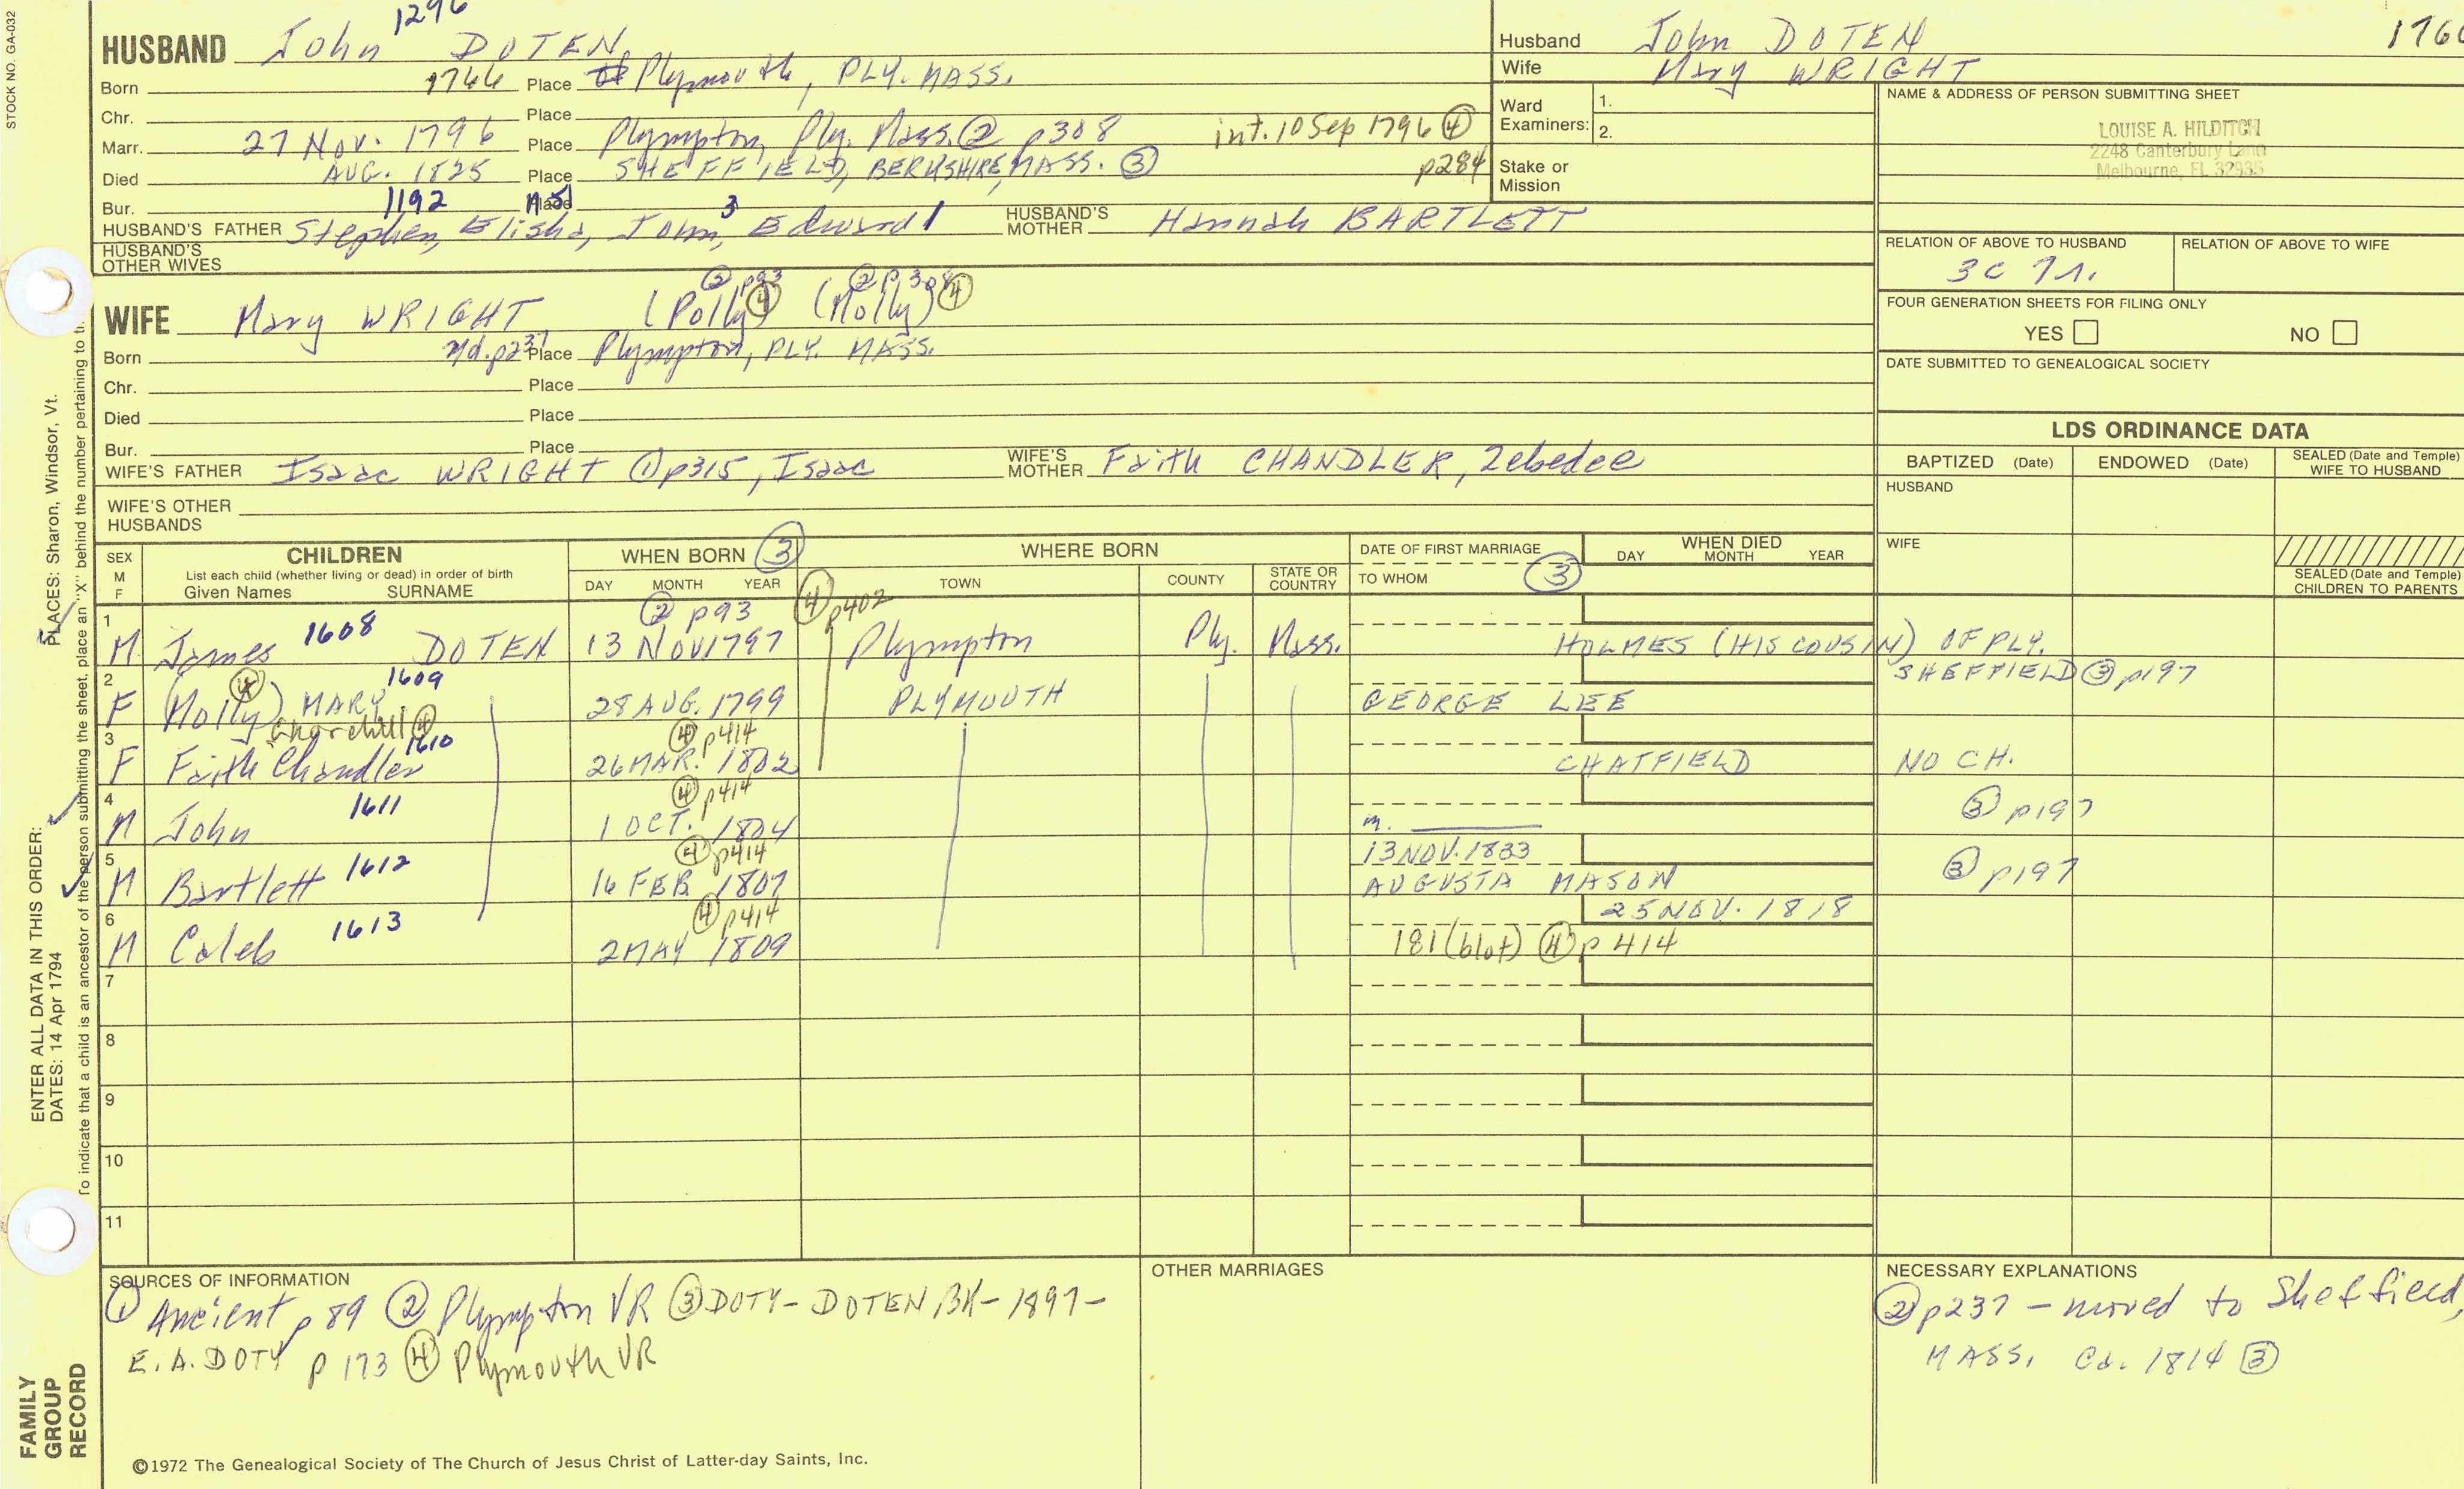 STOCK NO. GA-032
1296
HUSBAND John DOTEN
Born 1766 Place of Plymouth, PLY. MASS.
Chr. Place
Marr. 27 Nov. 1796 Place Plympton, Ply. Mass. ② p308 int. 10 Sep 1796 ④ p284
Died AUG. 1825 Place SHEFFIELD, BERKSHIRE, MASS. ③
Bur. Place
1192 3
HUSBAND'S FATHER Stephen, Elisha, John, Edward 1 HUSBAND'S MOTHER Hannah BARTLETT
HUSBAND'S OTHER WIVES
② p93 ② p308
WIFE Mary WRIGHT (Polly) ④ (Molly) ④
Born p237 Place Plympton, PLY. MASS.
Chr. Place
Died Place
Bur. Place
WIFE'S FATHER Isaac WRIGHT ① p315, Isaac WIFE'S MOTHER Faith CHANDLER, Zebedee
WIFE'S OTHER HUSBANDS
Husband John DOTEN 1766
Wife Mary WRIGHT
Ward Examiners: 1.
2.
Stake or Mission
NAME & ADDRESS OF PERSON SUBMITTING SHEET
LOUISE A. HILDITCH
2248 Canterbury Lane
Melbourne, FL 32935
RELATION OF ABOVE TO HUSBAND RELATION OF ABOVE TO WIFE
3C
FOUR GENERATION SHEETS FOR FILING ONLY
YES NO
DATE SUBMITTED TO GENEALOGICAL SOCIETY
LDS ORDINANCE DATA
BAPTIZED (Date) ENDOWED (Date) SEALED (Date and Temple) WIFE TO HUSBAND
HUSBAND
WIFE
SEALED (Date and Temple) CHILDREN TO PARENTS
SEX M F
CHILDREN
List each child (whether living or dead) in order of birth
Given Names SURNAME
WHEN BORN ③
DAY MONTH YEAR
WHERE BORN
TOWN COUNTY STATE OR COUNTRY
DATE OF FIRST MARRIAGE
TO WHOM ③
WHEN DIED
DAY MONTH YEAR
② p93 ④ p402
1 M James 1608 DOTEN 13 NOV 1797 Plympton Ply. Mass. HOLMES (HIS COUSIN) OF PLY.
SHEFFIELD ③ p197
2 F (Molly) ④ MARY 1609 28 AUG. 1799 PLYMOUTH GEORGE LEE
Churchill ④
④ p414
3 F Faith Chandler 1610 26 MAR. 1802 CHATFIELD NO CH.
④ p414
4 M John 1611 1 OCT. 1804 m. ③ p197
④ p414
13 NOV. 1833
5 M Bartlett 1612 16 FEB. 1807 AUGUSTA MASON ③ p197
④ p414
25 NOV. 1818
6 M Caleb 1613 2 MAY 1809 181(blot) ④ p414
7
8
9
10
11
SOURCES OF INFORMATION
① Ancient p 89 ② Plympton VR ③ DOTY-DOTEN BK-1897-
E. A. DOTY p 173 ④ Plymouth VR
OTHER MARRIAGES
NECESSARY EXPLANATIONS
② p237 - moved to Sheffield,
MASS. ca. 1814 ③
©1972 The Genealogical Society of The Church of Jesus Christ of Latter-day Saints, Inc.
FAMILY GROUP RECORD
ENTER ALL DATA IN THIS ORDER:
DATES: 14 Apr 1794
PLACES: Sharon, Windsor, Vt.
To indicate that a child is an ancestor of the person submitting the sheet, place an "X" behind the number pertaining to